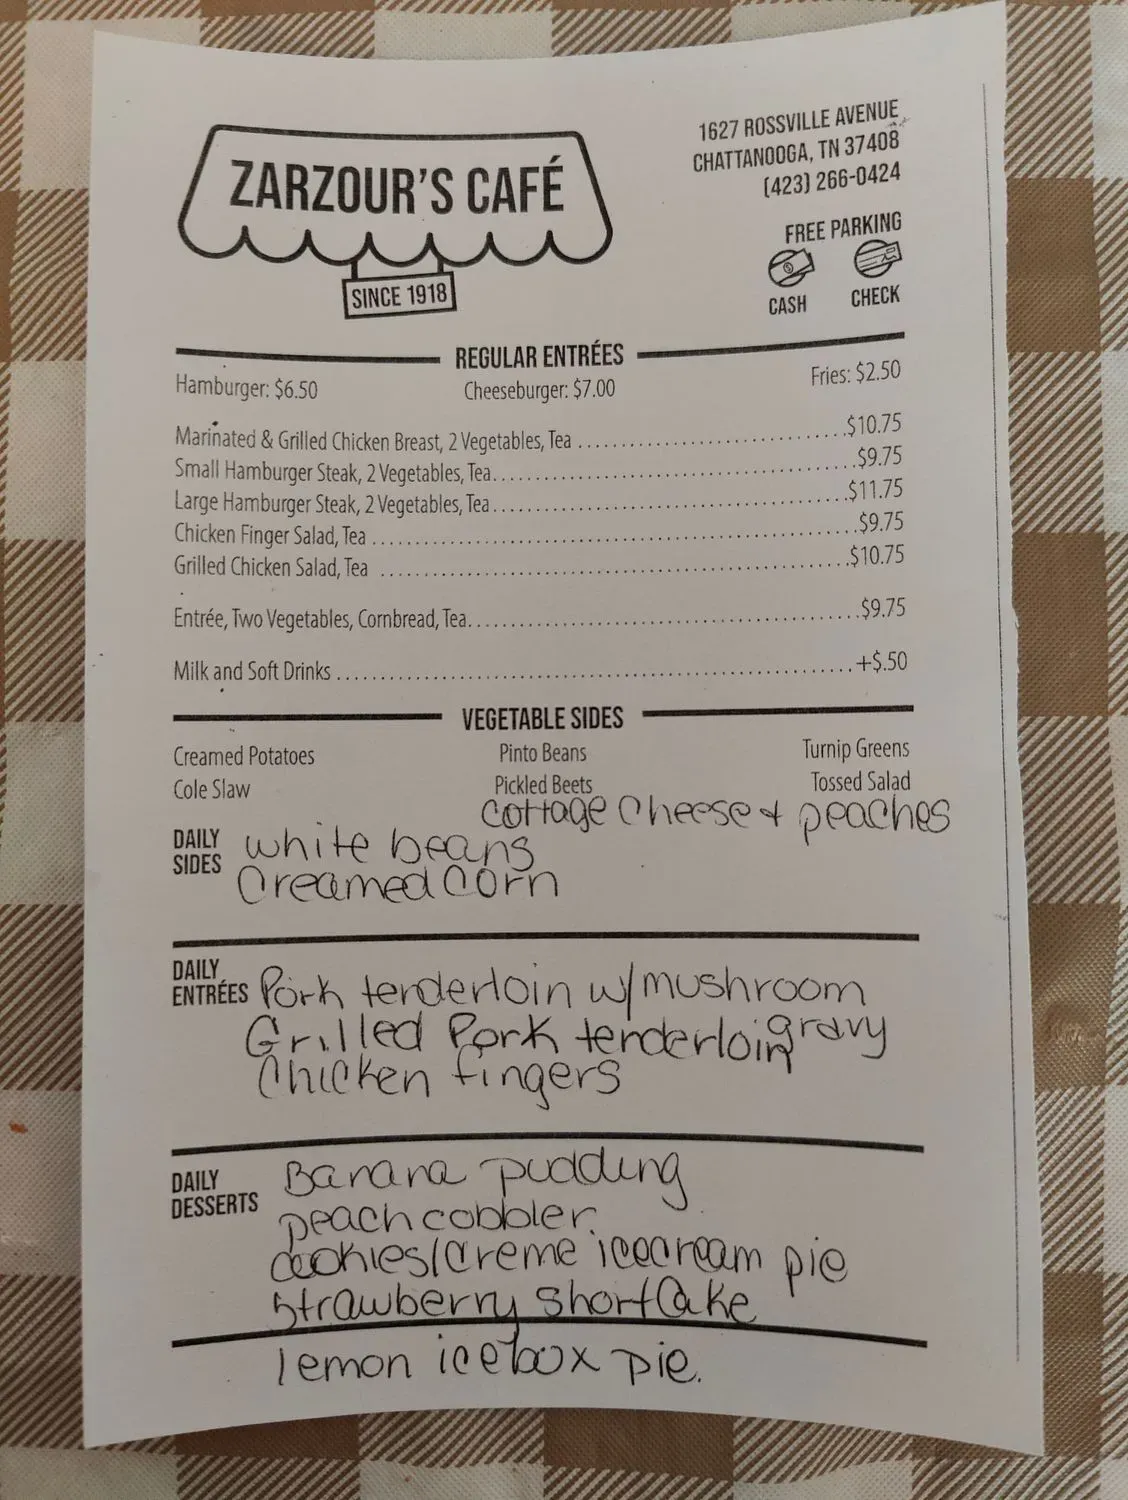 ZARZOUR'S CAFÉ
SINCE 1918
1627 ROSSVILLE AVENUE
CHATTANOOGA, TN 37408
(423) 266-0424
FREE PARKING
CASH CHECK
REGULAR ENTRÉES
Hamburger: $6.50 Cheeseburger: $7.00 Fries: $2.50
Marinated & Grilled Chicken Breast, 2 Vegetables, Tea $10.75
Small Hamburger Steak, 2 Vegetables, Tea $9.75
Large Hamburger Steak, 2 Vegetables, Tea $11.75
Chicken Finger Salad, Tea $9.75
Grilled Chicken Salad, Tea $10.75
Entrée, Two Vegetables, Cornbread, Tea $9.75
Milk and Soft Drinks +$.50
VEGETABLE SIDES
Creamed Potatoes Pinto Beans Turnip Greens
Cole Slaw Pickled Beets Tossed Salad
cottage cheese & peaches
DAILY SIDES
white beans
Creamed Corn
DAILY ENTRÉES
Pork tenderloin w/mushroom gravy
Grilled Pork tenderloin
Chicken fingers
DAILY DESSERTS
Banana pudding
peach cobbler
cookies/creme icecream pie
Strawberry ShortCake
lemon icebox pie.